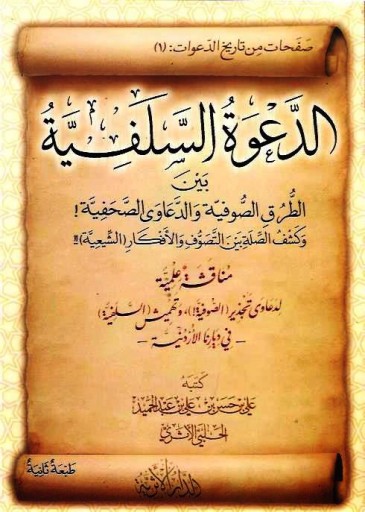 صَفَحَات مِن تَارِيخ الدَّعوَات: (٦)
الدَّعْوَةُ السَّلَفِيَّةُ
بَيْنَ
الطُّرُقِ الصُّوفِيَّةِ وَالدَّعَاوَى الصَّحَفِيَّةِ!
وَكَشْفُ الصِّلَةِ بَيْنَ التَّصَوُّفِ وَالأَفْكَارِ (الشِّيعِيَّةِ)!!
مُنَاقَشَةٌ عِلْمِيَّةٌ
لِدَعَاوَى تَجْذِيرِ (الصُّوفِيَّةِ!)، وَتَهْمِيشِ (السَّلَفِيَّةِ)
- فِي دِيَارِنَا الأُرْدُنِيَّةِ -
كَتَبَهُ
عَلِيُّ بْنُ حَسَنِ بْنِ عَلِيِّ بْنِ عَبْدِ الحَمِيدِ
الحَلَبِيُّ الأَثَرِيُّ
طَبْعَة ثَانِيَة
الدار الأثرية